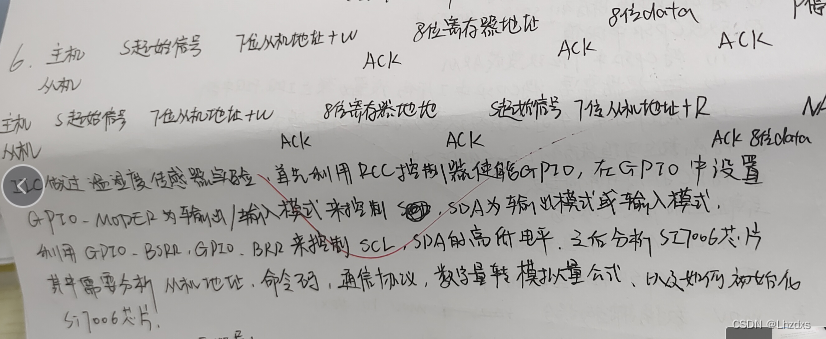 6. 主机 S起始信号 7位从机地址+W 8位寄存器地址 8位data P停
从机 ACK ACK ACK
主机 S起始信号 7位从机地址+W 8位寄存器地地 S起始信号 7位从机地址+R NA
从机 ACK ACK ACK 8位data
IIC做过温湿度传感器实验，首先利用RCC控制器使能GPIO，在GPIO中设置
GPIO-MODER为输出/输入模式来控制 SDA为输出模式或输入模式.
利用GPIO-BSRR，GPIO-BRR来控制SCL，SDA的高低电平. 之后分析SI7006芯片
其中需要分析从机地址，命令码，通信协议，数字量转模拟量公式、以及如何初始化
Si7006芯片.
CSDN @Lhzdxs